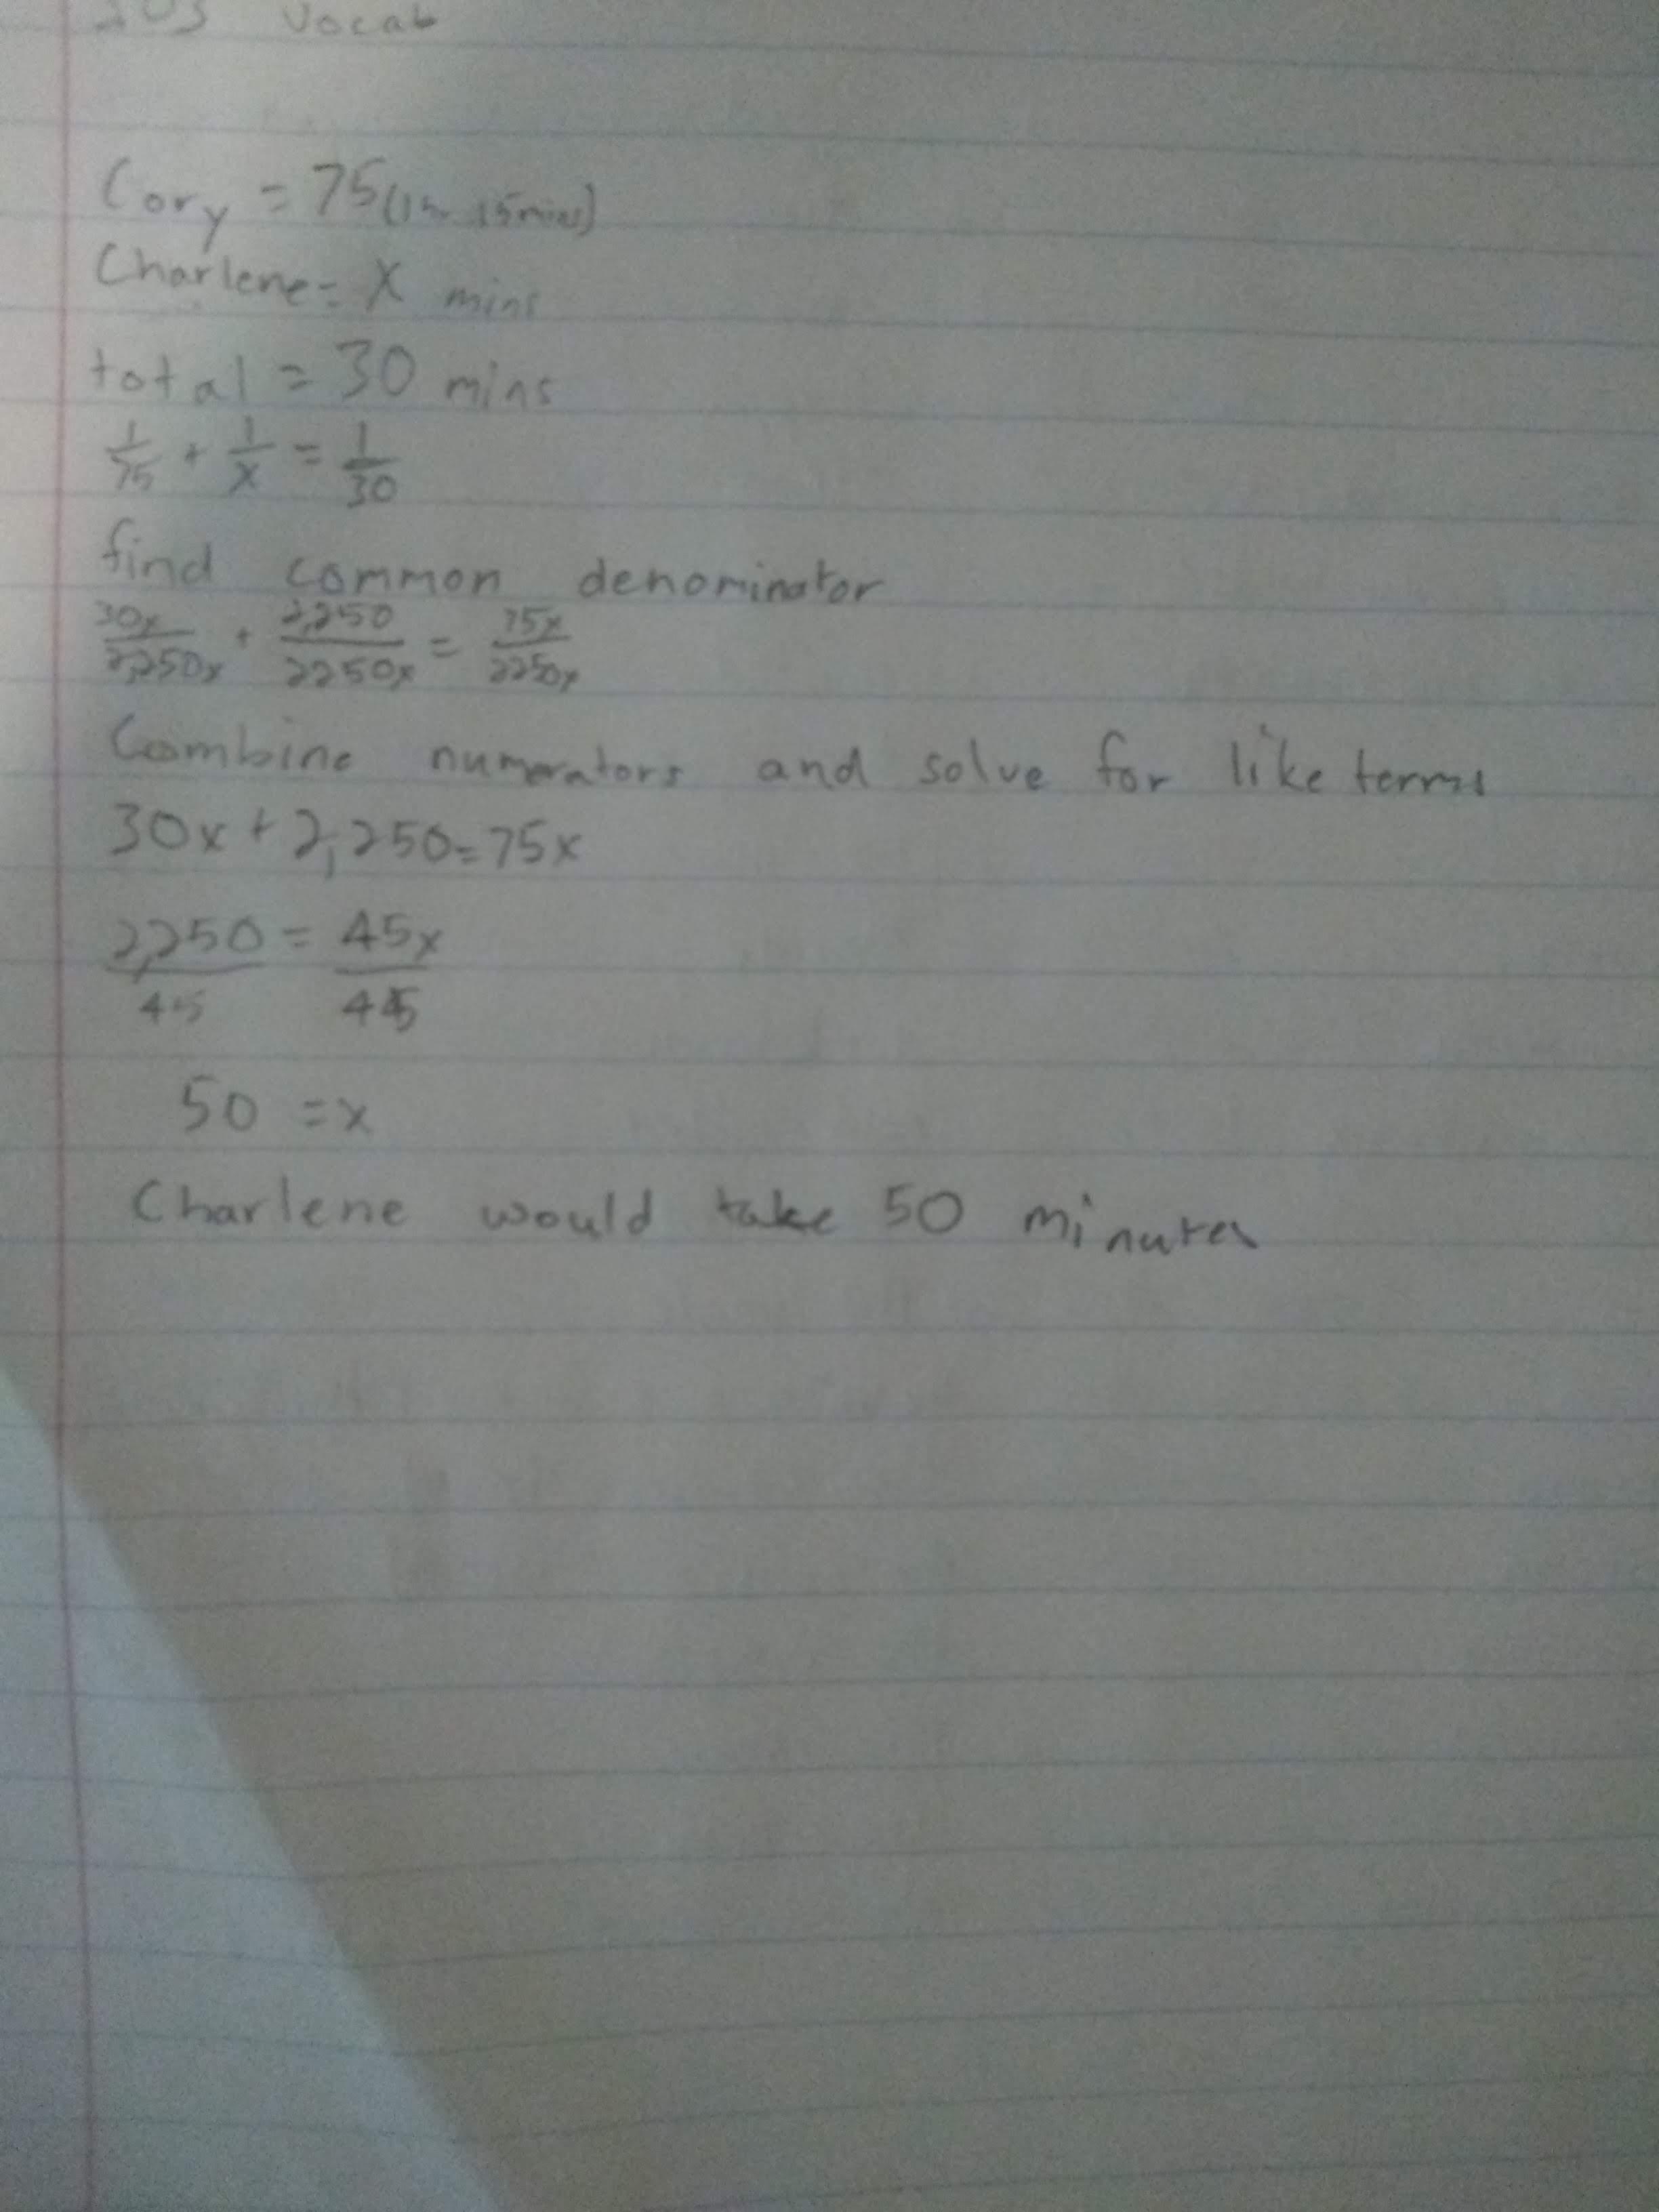 Vocab
Cory = 75 (1hr 15mins)
Charlene = X mins
total = 30 mins
1/75 + 1/x = 1/30
find common denominator
30x/2,250x + 2,250/2250x = 75x/2250x
Combine numerators and solve for like terms
30x + 2,250 = 75x
2,250 = 45x
45 45
50 = x
Charlene would take 50 minutes